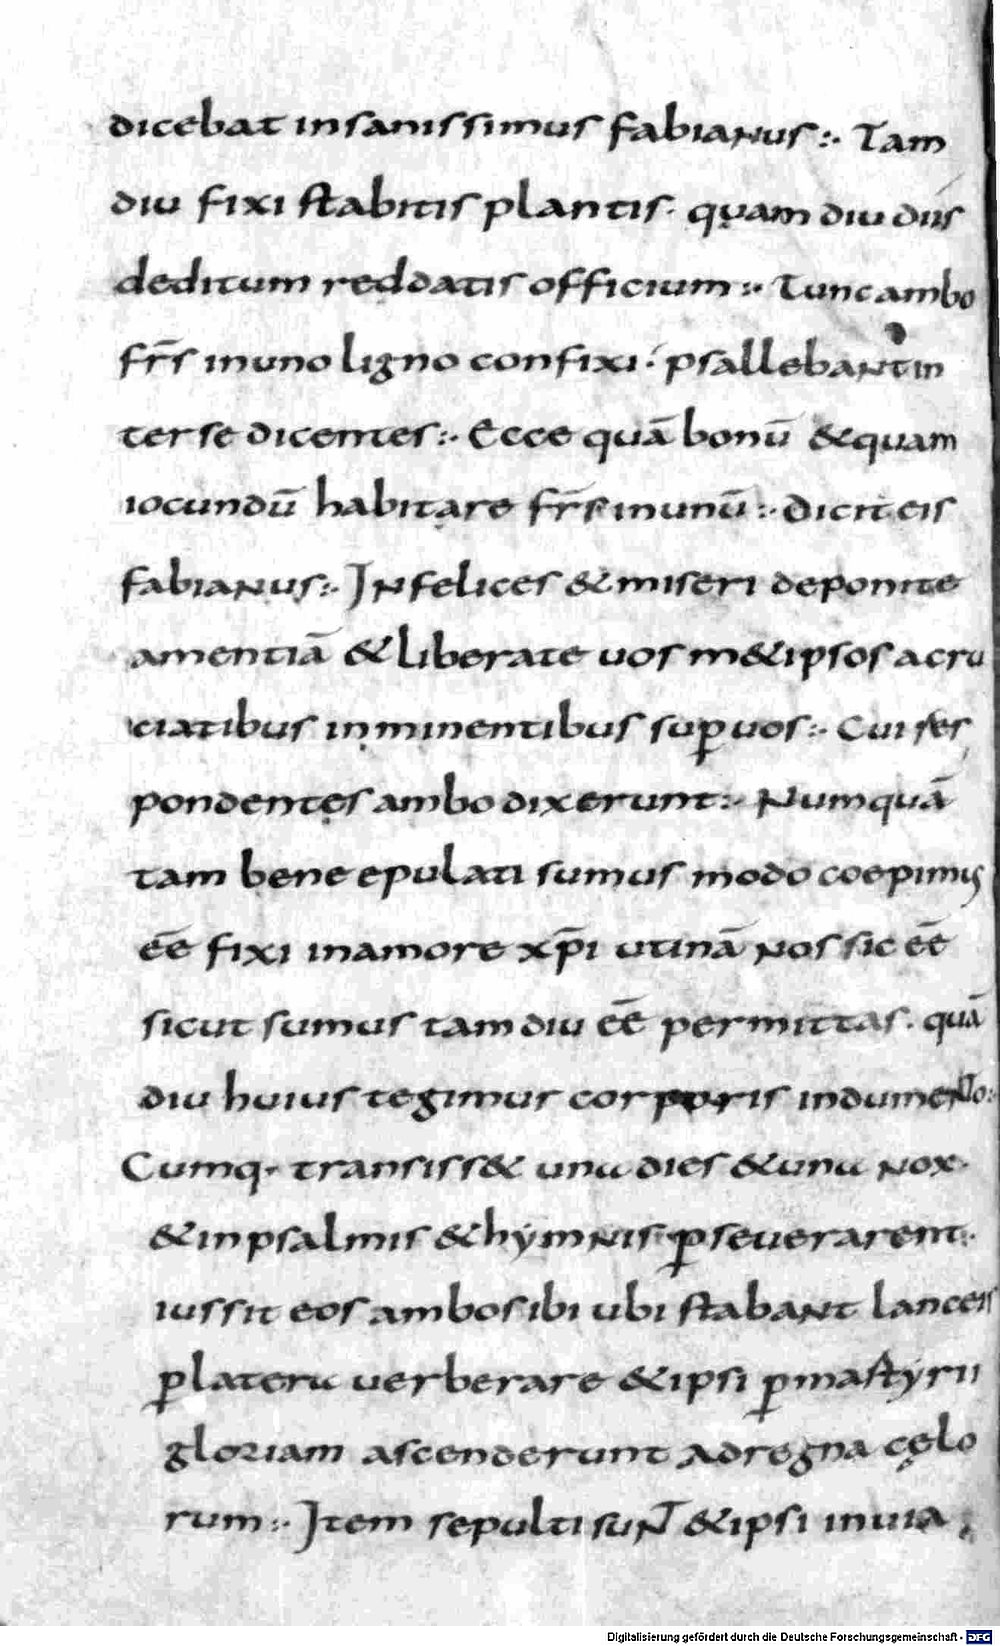 dicebat insanissimus fabianus:· Tam
diu fixi stabitis plantis· quam diu diis
deditum reddatis officium:· Tunc ambo
fr̄s in uno ligno confixi· psallebant in
ter se dicentes:· Ecce quā bonū & quam
iocundū habitare fr̄s in unū:· Dicit eis
fabianus:· Infelices & miseri deponite
amentiā & liberate uos m&ipsos a cru
ciatibus inminentibus sup̱ uos:· Cui res
pondentes ambo dixerunt:· Numquā
tam bene epulati sumus modo coepimus
ēē fixi in amore xp̄i utinā nos sic ēē
sicut sumus tam diu ēē permittas· quā
diu huius tegimur corporis indumento:·
Cumq· transiss& una dies & una nox·
& in psalmis & hẏmnis p̱seuerarent:·
iussit eos ambos ibi ubi stabant lanceis
p̱ latera uerberare & ipsi p̱ mastẏrii
gloriam ascenderunt ad regna cęlo
rum:· Item sepulti sunt & ipsi in uia
Digitalisierung gefördert durch die Deutsche Forschungsgemeinschaft - DFG